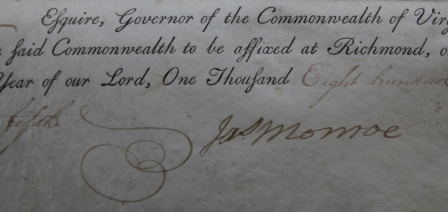 Esquire, Governor of the Commonwealth of Virg
said Commonwealth to be affixed at Richmond, o
Year of our Lord, One Thousand Eight hundred
Jas Monroe